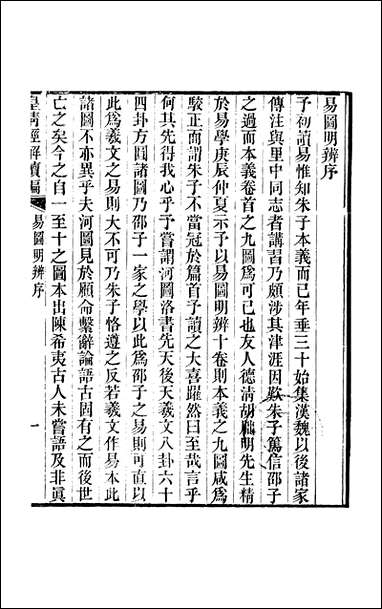 易圖明辨序
予初讀易惟知朱子本義而已年垂三十始集漢魏以後諸家
傳注與里中同志者講習乃頗涉其津涯因歎朱子篤信邵子
之過而本義卷首之九圖為可已也友人德清胡朏明先生精
於易學庚辰仲夏示予以易圖明辨十卷則本義之九圖咸為
駮正而謂朱子不當冠於篇首予讀之大喜躍然曰至哉言乎
何其先得我心乎予嘗謂河圖洛書先天後天羲文八卦六十
四卦方圓諸圖乃邵子一家之學以此為邵子之易則可直以
此為羲文之易則大不可乃朱子恪遵之反若羲文作易本此
諸圖不亦異乎夫河圖見於顧命繫辭論語古固有之而後世
亡之矣今之自一至十之圖本出陳希夷古人未嘗語及非眞
皇淸經解續編
易圖明辨序
一